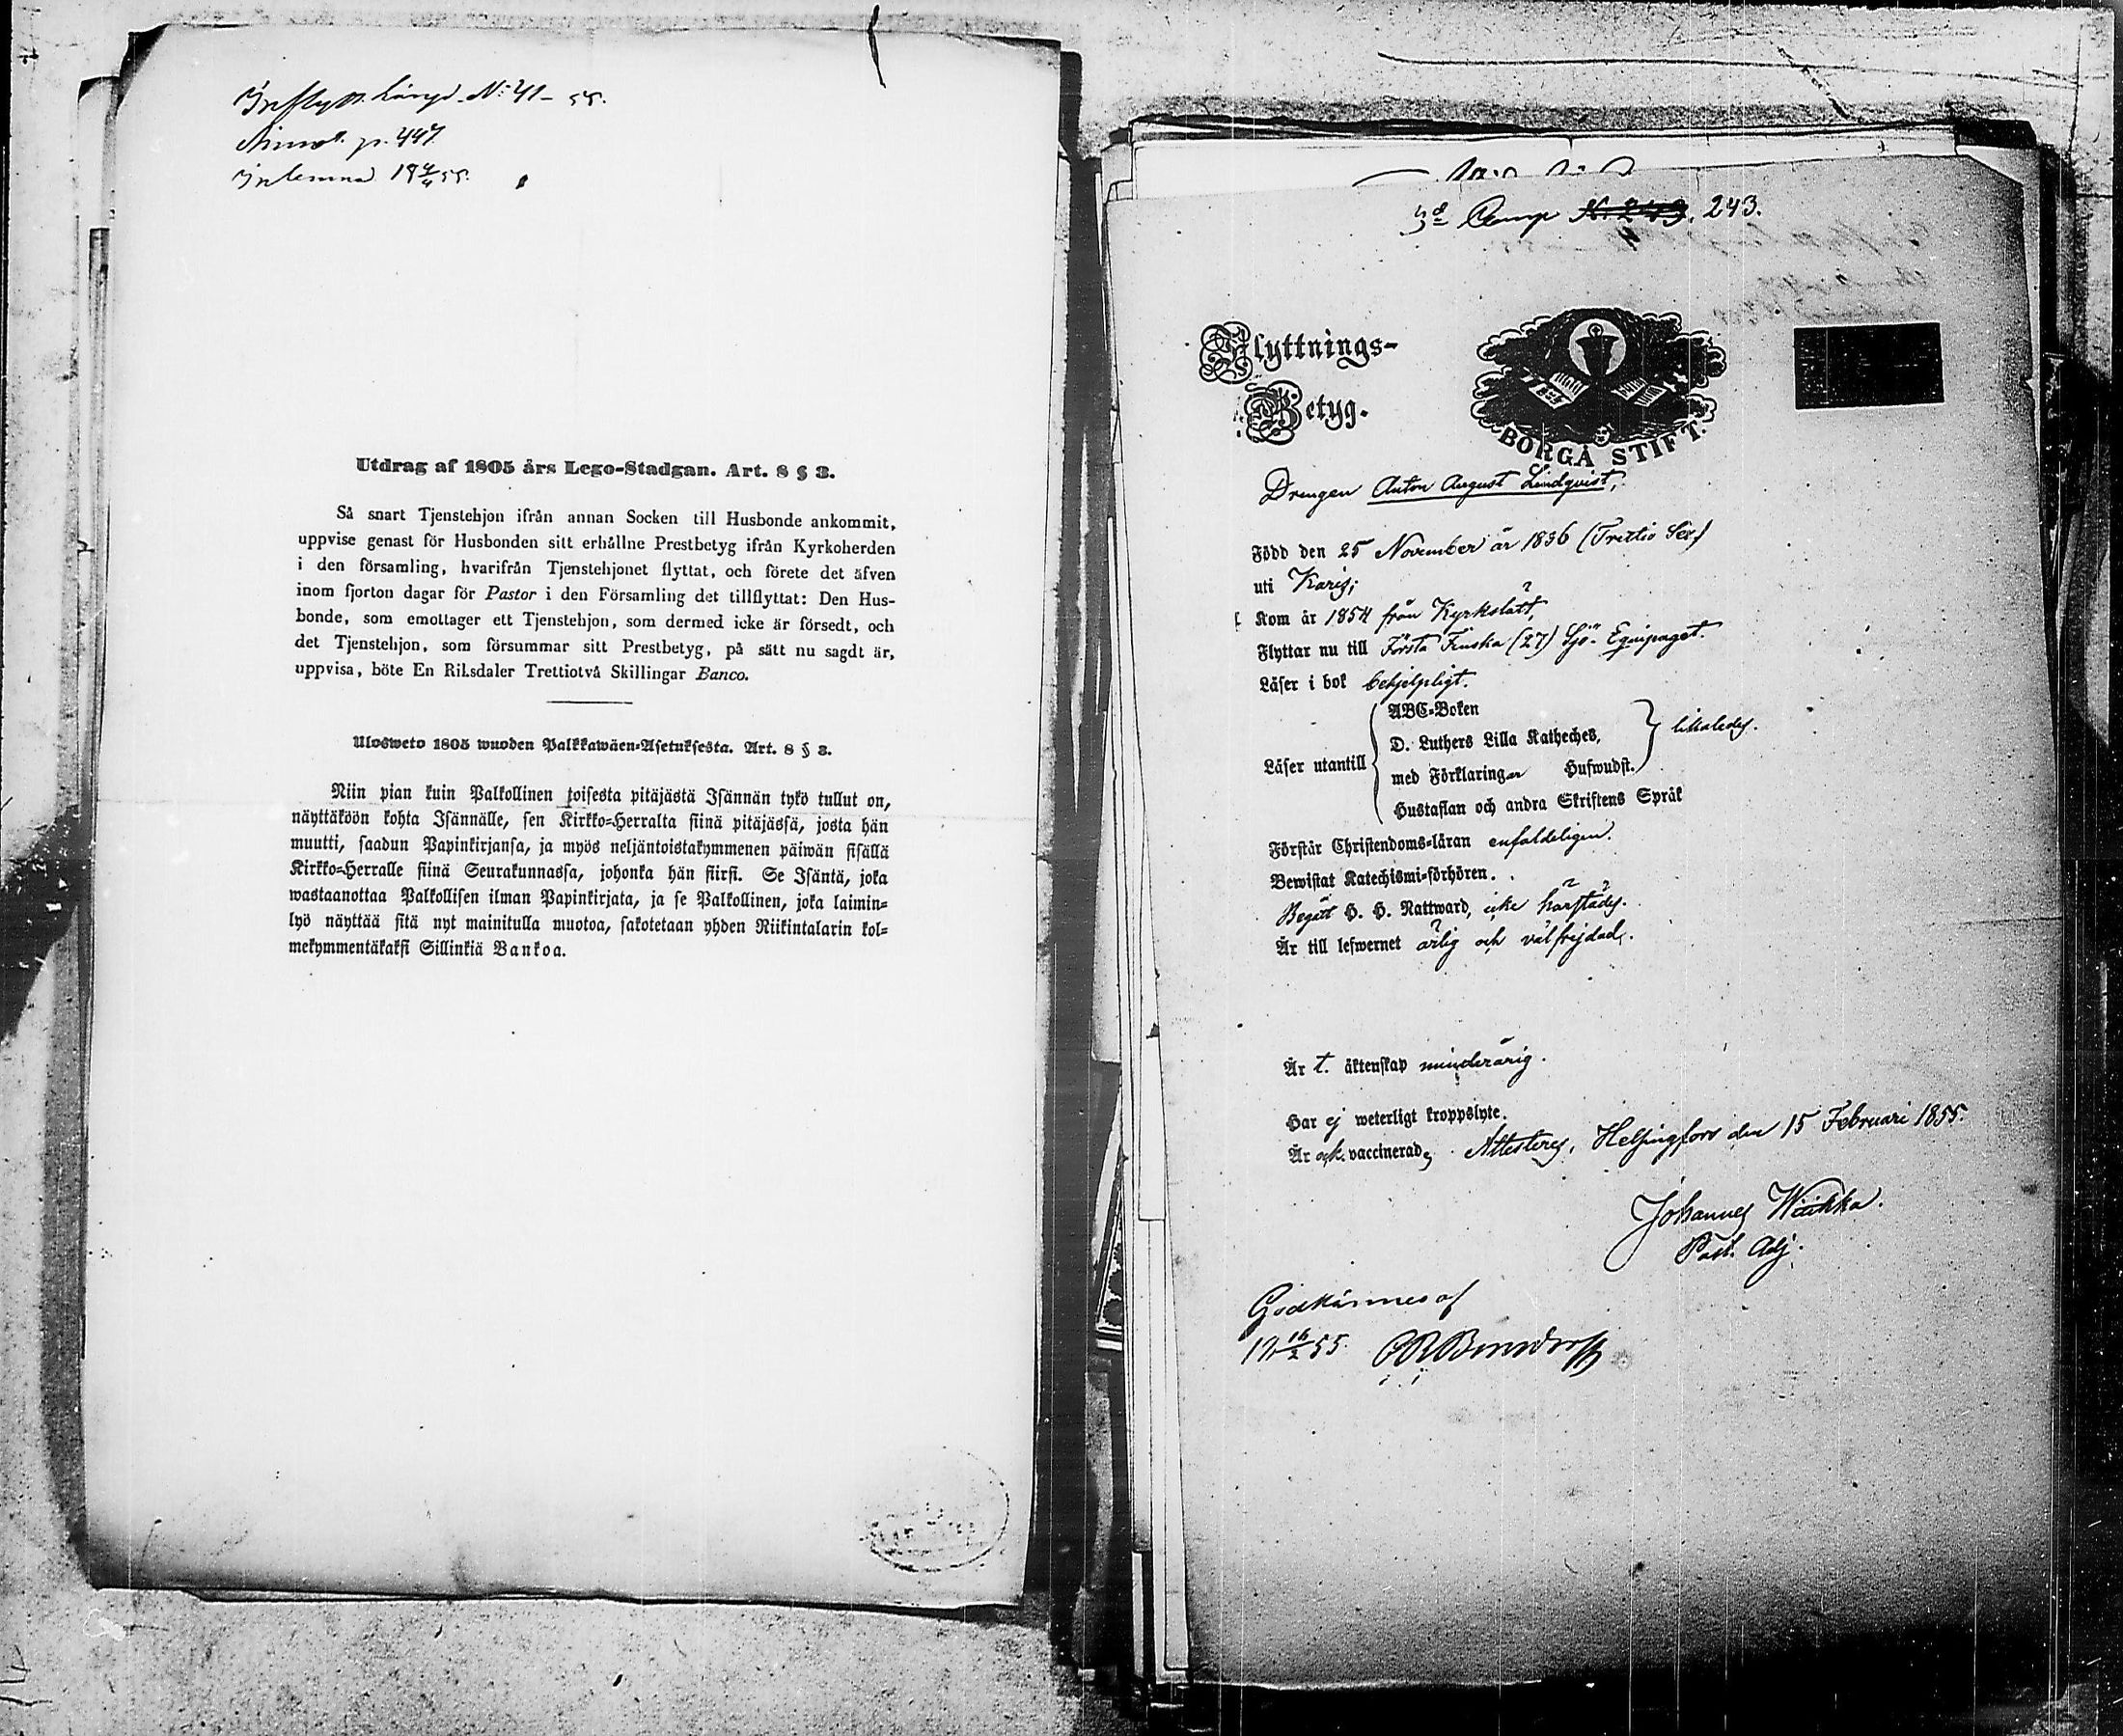 Inflytt. längd. N:41 - 55.
p. 447
Inlemnad 18 4/4 55.
Utdrag af 1805 års Lego-Stadgan. Art. 8 § 3.
Så snart Tjenstehjon ifrån annan Socken till Husbonde ankommit,
uppvise genast för Husbonden sitt erhållne Prestbetyg ifrån Kyrkoherden
i den församling, hvarifrån Tjenstehjonet flyttat, och förete det äfven
inom fjorton dagar för Pastor i den Församling det tillflyttat: Den Hus-
bonde, som emottager ett Tjenstehjon, som dermed icke är försedt, och
det Tjenstehjon, som försummar sitt Prestbetyg, på sätt nu sagdt är,
uppvisa, böte En Riksdaler Trettiotvå Skillingar Banco.
Ulosweto 1805 wuoden Palkkawäen-Asetuksesta. Art. 8 § 3.
Niin pian kuin Palkollinen toisesta pitäjästä Isännän tykö tullut on,
näyttäköön kohta Isännälle, sen Kirkko-Herralta siinä pitäjässä, josta hän
muutti, saadun Papinkirjansa, ja myös neljäntoistakymmenen päiwän sisällä
Kirkko-Herralle siinä Seurakunnassa, johonka hän siirsi. Se Isäntä, joka
wastaanottaa Palkollisen ilman Papinkirjata, ja se Palkollinen, joka laimin-
lyö näyttää sitä nyt mainitulla muotoa, sakotetaan yhden Riikintalarin kol-
mekymmentäkaksi Sillinkiä Bankoa.
3d Comp N: 243. 243.
Flyttnings-
Betyg.
BORGÅ STIFT.
Drengen Anton August Lindqvist,
Född den 25 November år 1836 (Trettio Sex)
uti Karis;
Kom år 1854 från Kyrkslätt,
Flyttar nu till Första Finska (27) Sjö-Equipaget.
Läser i bok behjelpligt.
ABC-Boken
D. Luthers Lilla Katheches,
Läser utantill med Förklaringar Hufwudst. likaledes.
Hustaflan och andra Skriftens Språk
Förstår Christendoms-läran enfaldeligen.
Bewistat Katechismi-förhören.
Begått H. H. Nattward, icke härstädes.
Är till lefwernet ärlig och välfrejdad.
Är t. äktenskap minderårig.
Har ej weterligt kroppslyte.
Är ock vaccinerad; Attesteras, Helsingfors den 15 Februari 1855.
Johannes Wiikka.
Past. Adj.
Godkännes af
18 16/2 55.